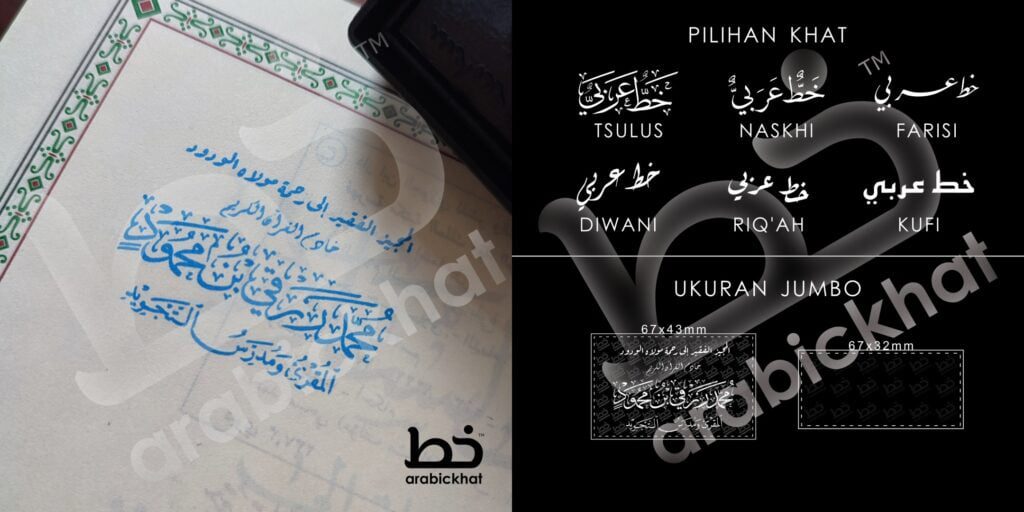 المجيز الفقير إلى رحمة مولاه الودود
خادم القرآن الكريم
بْنُ مَحْمُودٍ
المُقْرِئُ وَمُدَرِّسُ التَّجْوِيْد
خط
arabickhat
PILIHAN KHAT
خَطٌّ عَرَبِيٌّ
TSULUS
خَطٌّ عَرَبِيٌّ
NASKHI
خط عربي
FARISI
خط عربي
DIWANI
خط عربي
RIQ'AH
خط عربي
KUFI
UKURAN JUMBO
67x43mm
المجيز الفقير إلى رحمة مولاه الودود
خادم القرآن الكريم
بْنُ مَحْمُودٍ
المُقْرِئُ وَمُدَرِّسُ التَّجْوِيْد
67x32mm
خط
TM
arabickhat
خط
TM
arabickhat